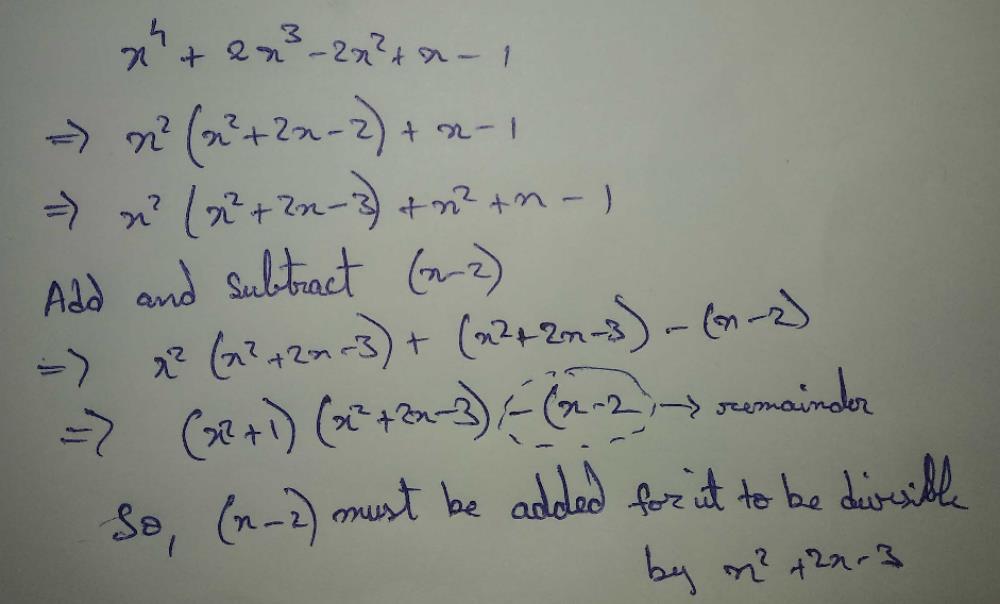 x⁴ + 2x³ - 2x² + x - 1
=> x² (x² + 2x - 2) + x - 1
=> x² (x² + 2x - 3) + x² + x - 1
Add and Subtract (x-2)
=> x² (x² + 2x - 3) + (x² + 2x - 3) - (x - 2)
=> (x² + 1) (x² + 2x - 3) - (x - 2) → remainder
So, (x-2) must be added for it to be divisible
by x² + 2x - 3